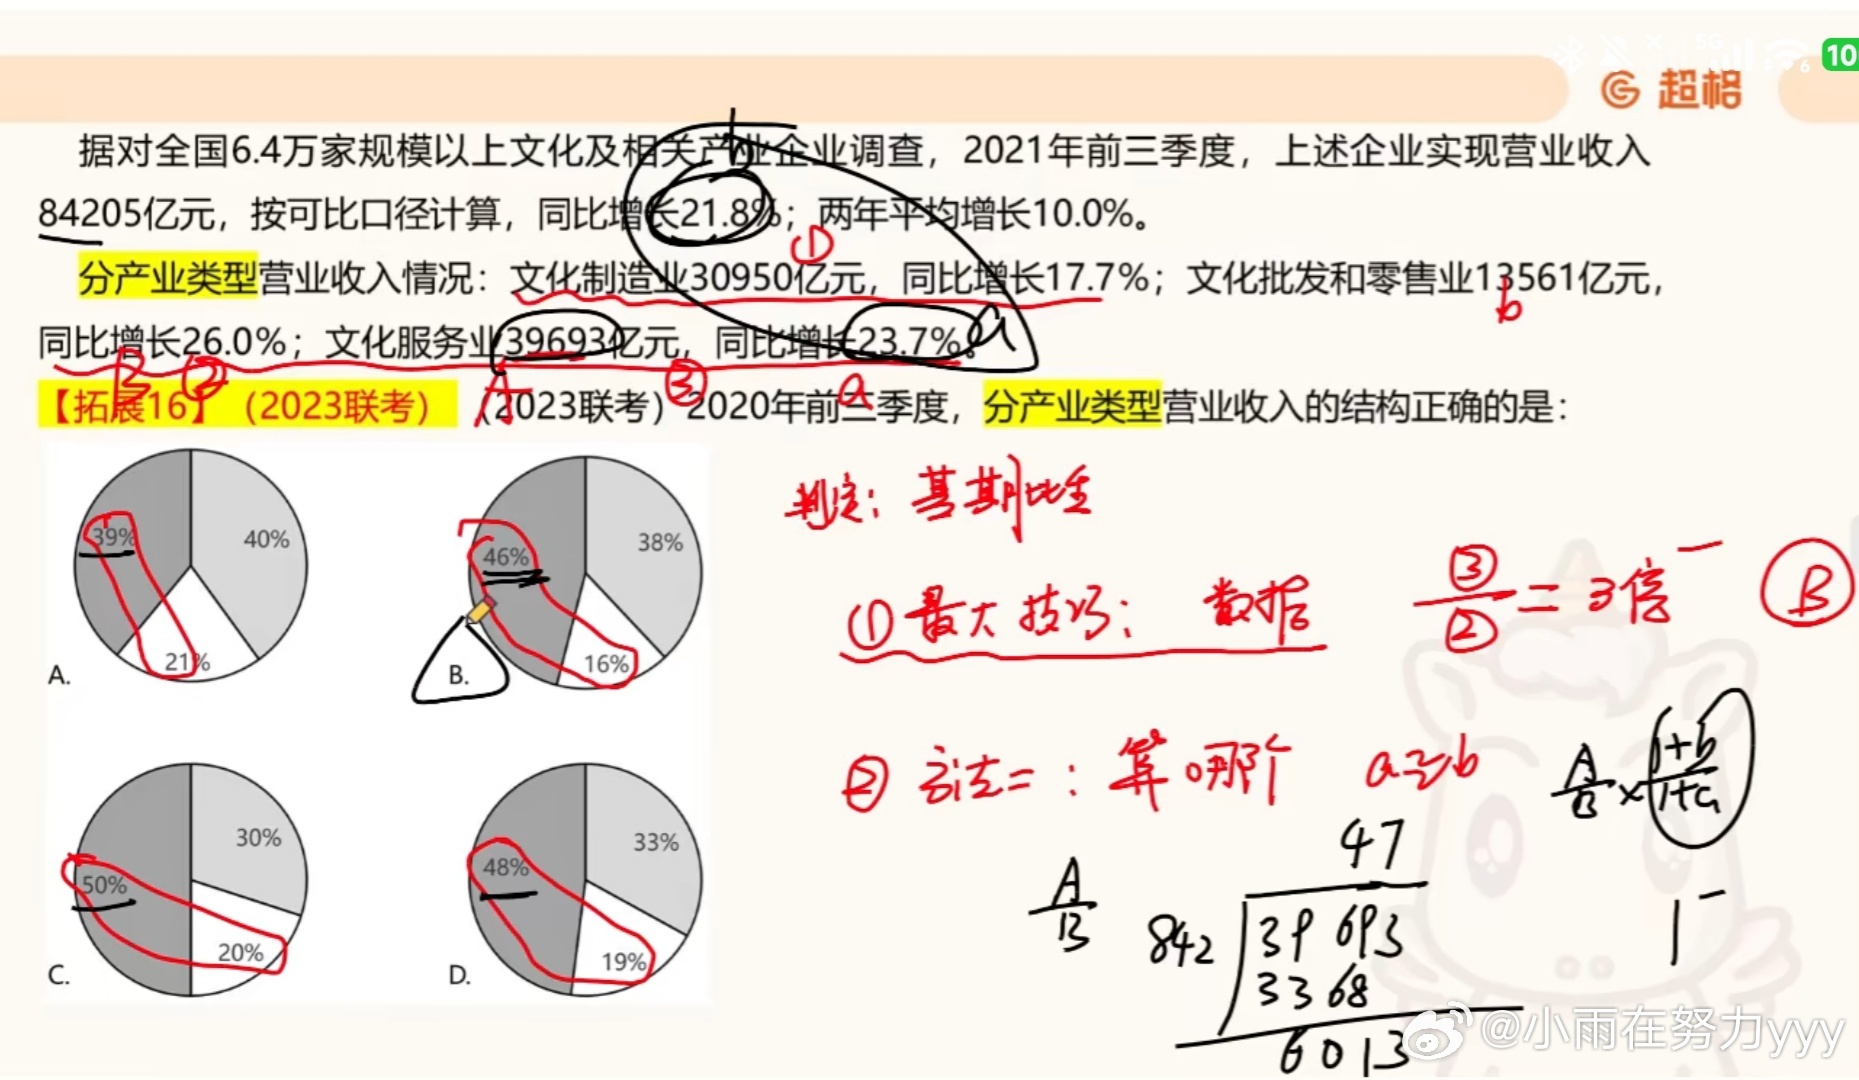 5G
6
10
超格
据对全国6.4万家规模以上文化及相关产业企业调查，2021年前三季度，上述企业实现营业收入
84205亿元，按可比口径计算，同比增长21.8%；两年平均增长10.0%。
分产业类型营业收入情况：文化制造业30950亿元，同比增长17.7%；文化批发和零售业13561亿元，
同比增长26.0%；文化服务业39693亿元，同比增长23.7%。
b
①
b
a
B ② A ③ a
【拓展16】（2023联考）（2023联考）2020年前三季度，分产业类型营业收入的结构正确的是：
39% 40% 21%
A.
46% 38% 16%
B.
50% 30% 20%
C.
48% 33% 19%
D.
判定：基期比重
①最大技巧：数据 ③/② = 3倍 B
②方法二：算哪个 a≥b
A/B × (1+b)/(1+a)
47
A/B 842 39693
3368
6013
1
@小雨在努力yyy